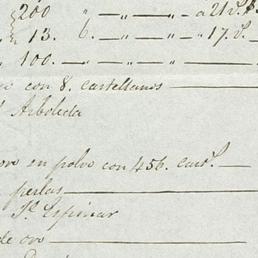 200 " — " — " — a 21 v.s $
" 13. 6. — " — " — " 17. v.s
" 100. — " — " —
con 8. castellanos
Arboleda
oro en polvo con 456. cast.s
perlas
J.e Espinar
de oro